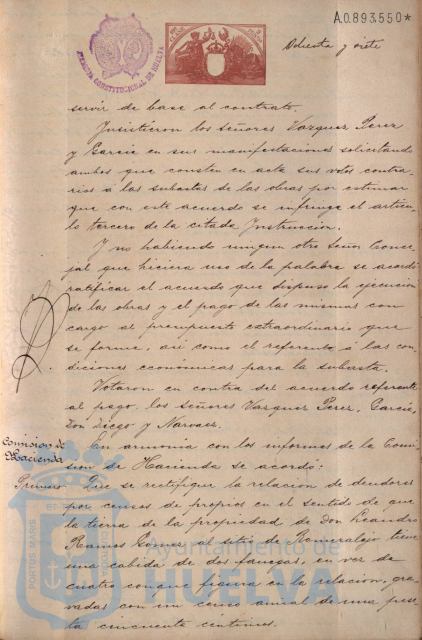 A.0.893.550*
Ochenta y siete
ALCALDIA CONSTITUCIONAL DE HUELVA
servir de base al contrato.
Insistieron los señores Vazquez Perez
y Garcia en sus manifestaciones solicitando
ambos que consten en acta sus votos contra-
rios á las subastas de las obras por estimar
que con este acuerdo se infringe el artícu-
lo tercero de la citada Instruccion.
Y no habiendo ningun otro Señor Conce-
jal que hiciera uso de la palabra se acordó
ratificar el acuerdo que dispuso la ejecucion
de las obras y el pago de las mismas con
cargo al presupuesto extraordinario que
se forme, asi como el referente á las con-
diciones económicas para la subasta.
Votaron en contra del acuerdo referente
al pago, los señores Vazquez Perez, Garcia,
Don Diego y Narvaez.
Comision de
Hacienda
En armonia con los informes de la Comi-
sion de Hacienda se acordó:
Primero Que se rectifique la relacion de deudores
por censos de propios en el sentido de que
la tierra de la propiedad de Don Leandro
Ramos Gomez al sitio de Romeralejo tiene
una cabida de dos fanegas, en vez de
cuatro conque figura en la relacion, gra-
vadas con un censo anual de una pese-
ta cincuenta centimos.
Ayuntamiento de
HUELVA
PORTUS MARIS